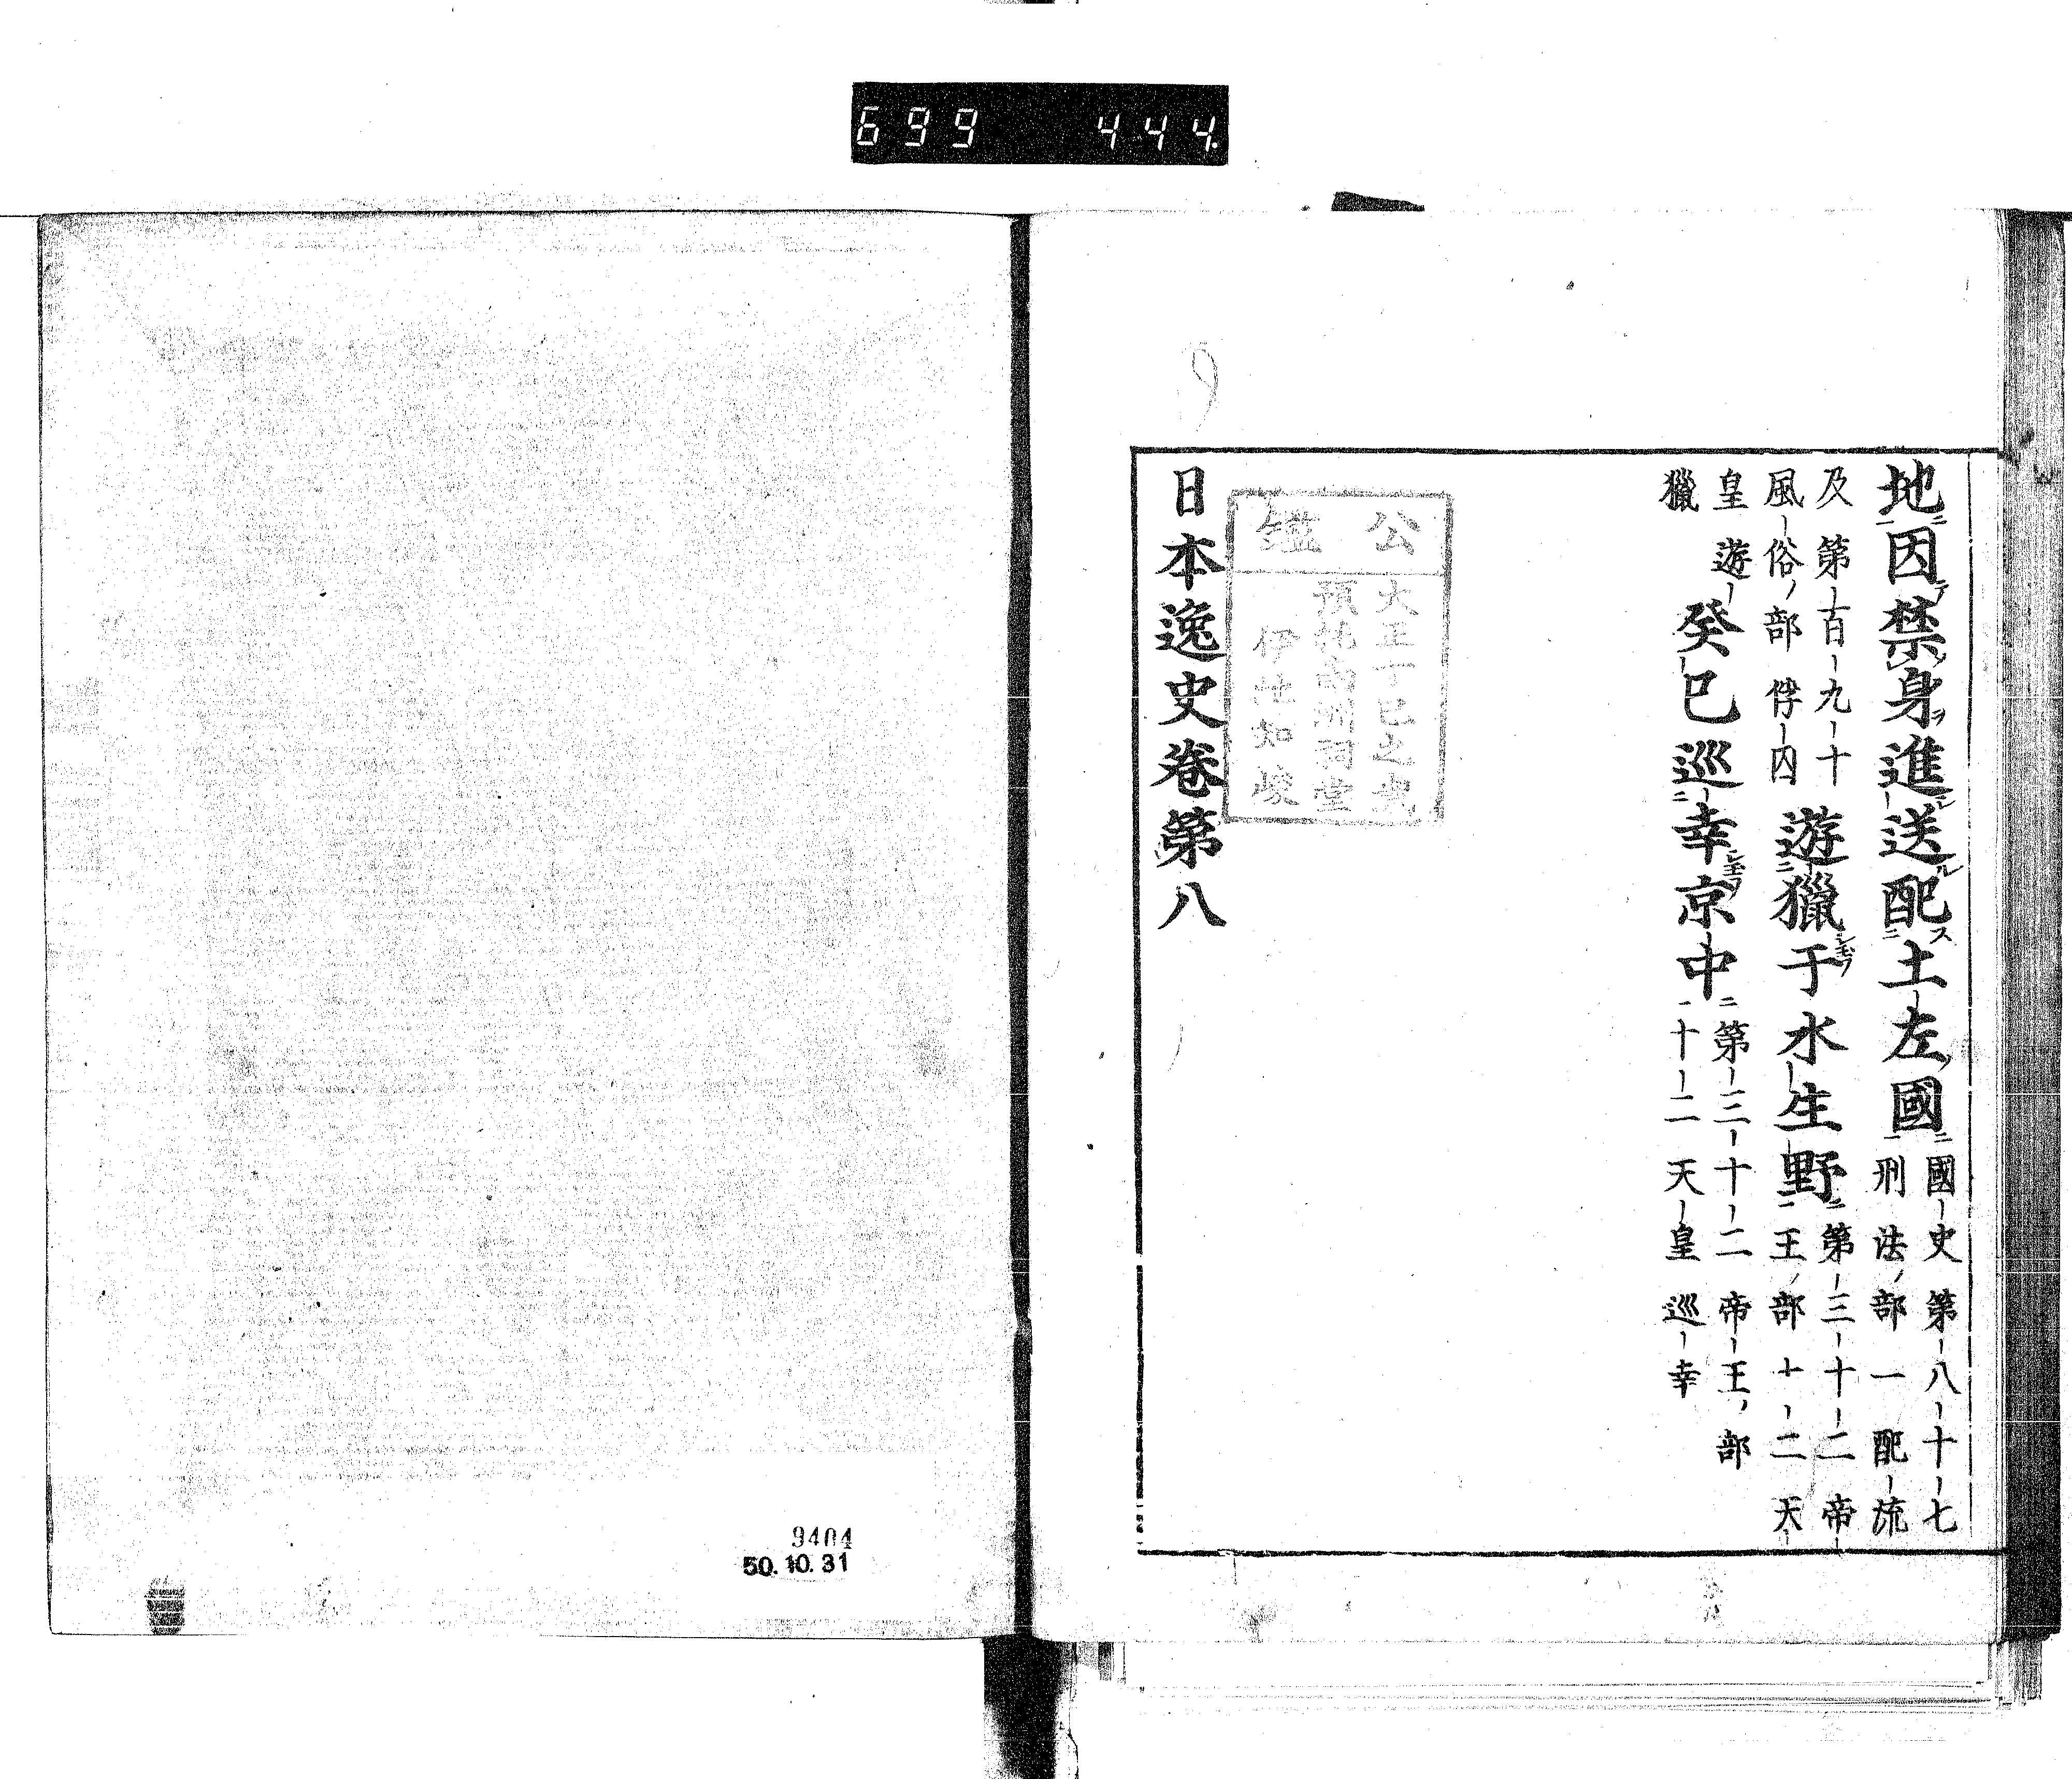 699 444.
地因禁身進送配土左國 國史第八十七
刑法部一配流
及第百九十
風俗部俘囚 遊獵于水生野 第三十二帝
王部十二天
皇遊
獵 癸巳巡幸京中 第三十二帝王部
十二天皇巡幸
公
大正丁巳之歳
預托南洲祠堂
伊地知峻
日本逸史卷第八
9404
50.10.31